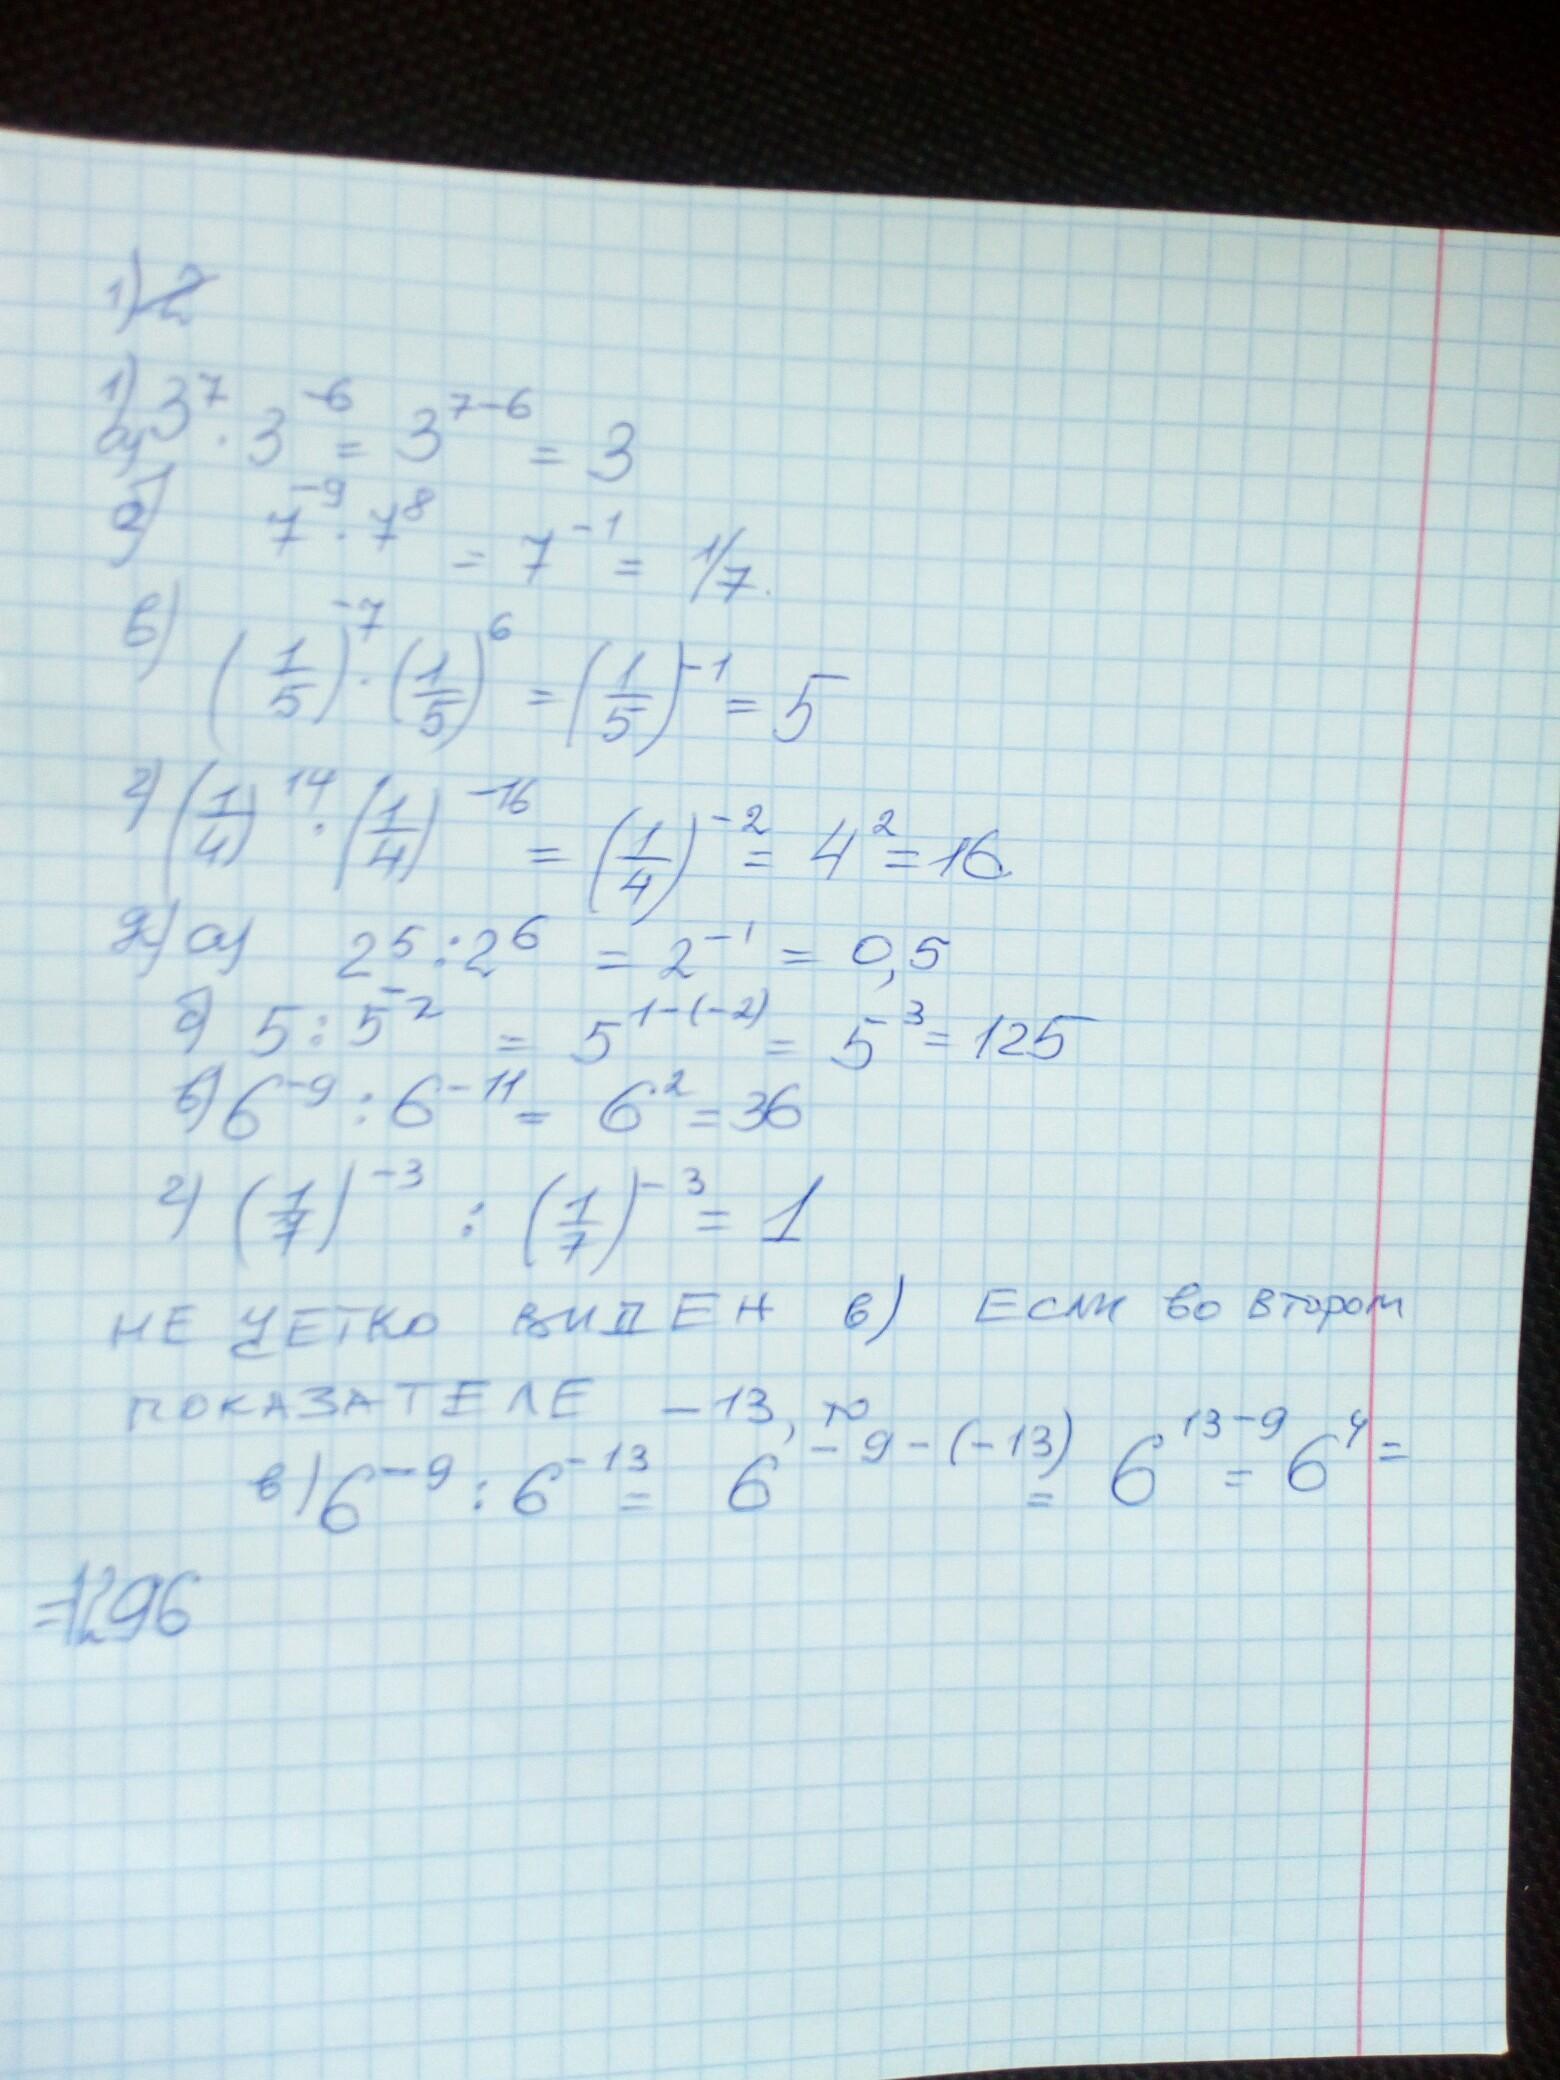 1)
1) а) 3⁷ · 3⁻⁶ = 3⁷⁻⁶ = 3
б) 7⁻⁹ · 7⁸ = 7⁻¹ = 1/7.
в) (1/5)⁻⁷ · (1/5)⁶ = (1/5)⁻¹ = 5
г) (1/4)¹⁴ · (1/4)⁻¹⁶ = (1/4)⁻² = 4² = 16
2) а) 2⁵ : 2⁶ = 2⁻¹ = 0,5
б) 5 : 5⁻² = 5¹⁻⁽⁻²⁾ = 5³ = 125
в) 6⁻⁹ : 6⁻¹¹ = 6² = 36
г) (1/7)⁻³ : (1/7)⁻³ = 1
НЕ ЧЕТКО ВИДЕН в) ЕСЛИ во втором
ПОКАЗАТЕЛЕ -13, то
в) 6⁻⁹ : 6⁻¹³ = 6⁻⁹⁻⁽⁻¹³⁾ = 6¹³⁻⁹ = 6⁴ =
=1296